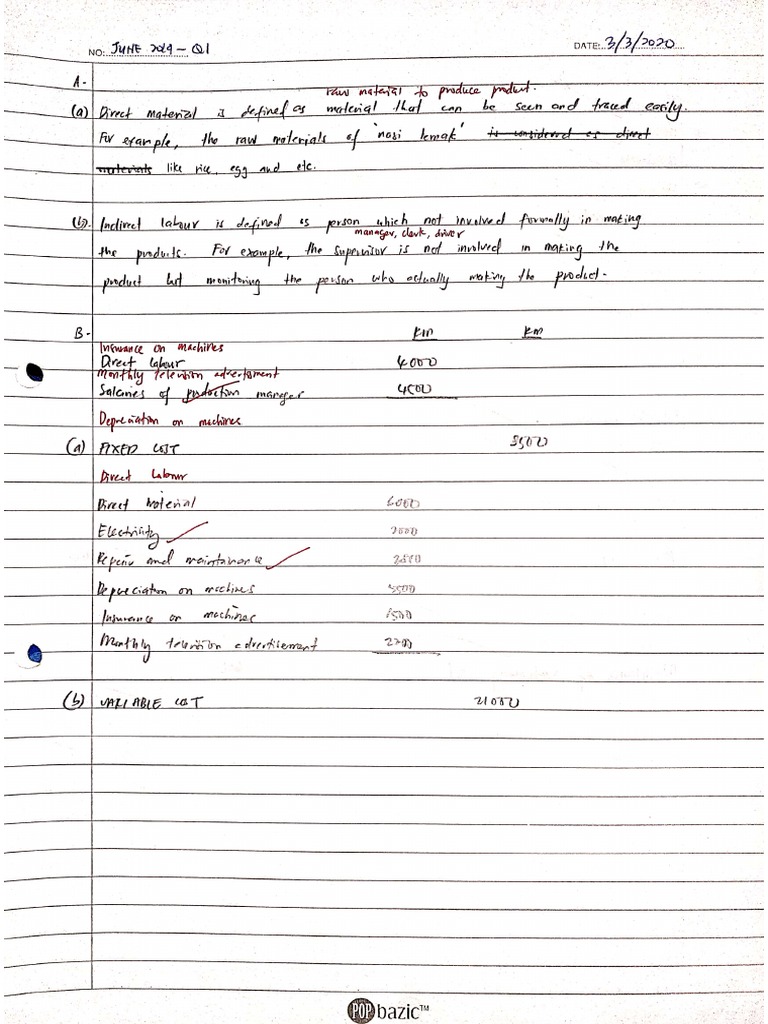 NO: JUNE 2019 - Q1 DATE: 3/3/2020
A-
raw material to produce product.
(a) Direct material is defined as material that can be seen and traced easily.
For example, the raw materials of 'nasi lemak' is considered as direct
materials like rice, egg and etc.
(b). Indirect labour is defined as person which not involved formally in making
manager, clerk, driver
the products. For example, the supervisor is not involved in making the
product but monitoring the person who actually making the product.
B- RM RM
Insurance on machines
Direct labour 4000
Monthly television advertisment
Salaries of production manager 4500
Depreciation on machines
(a) FIXED COST
Direct labour
Direct material 6000
Electricity
Repair and maintainance
Depreciation on machines
Insurance on machines
Monthly television advertisement
(b) VARIABLE COST 21000
POP bazic™